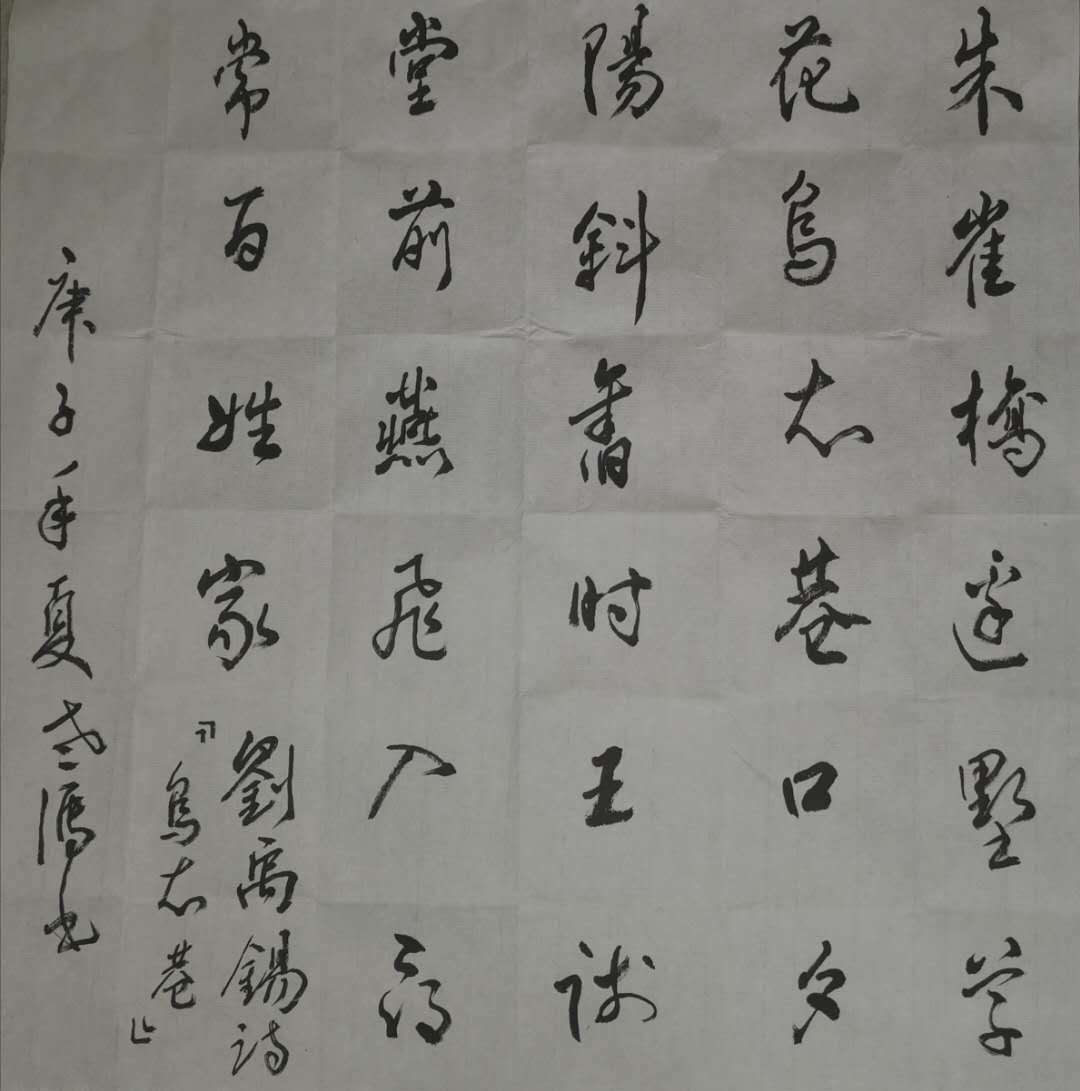 朱雀橋邊野草
花烏衣巷口夕
陽斜舊时王謝
堂前燕飛入尋
常百姓家
劉禹錫詩
『烏衣巷』
庚子年夏 书